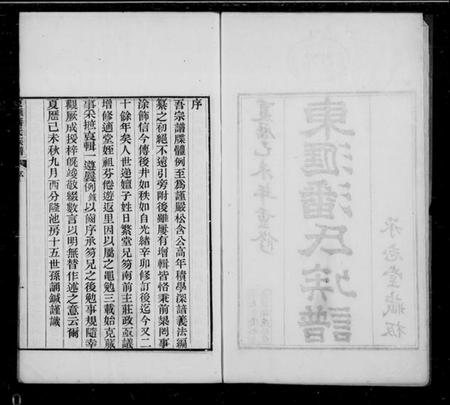 序
吾宗譜牒體例至爲謹嚴松含公高年積學深諳義法編
纂之初絕不遠引旁附後雖屢有增輯皆恪秉前榘罔事
塗飾信今傳後井如秩如自光緒辛卯修訂後迄今又二
十餘年矣人世遞嬗子姓日繁堂兄笏南前主莊政亟議
增修適堂姪祖芬倦遊返里因以屬之黽勉三載始克蕆
事采摭裒輯一遵曩例 以齒序承笏兄之後勉事規隨幸
觀厥成授梓旣竣敬綴數言以明無替作述之意云爾
夏曆己未秋九月酉分隆池房十五世孫誦鍼謹識
東匯潘氏族譜
夏曆己未年重修
承志堂藏板